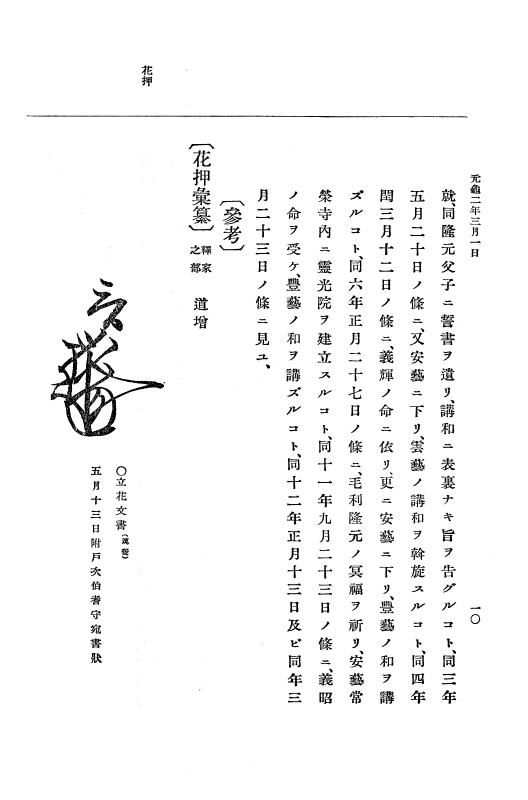 元龜二年三月一日
一〇
就、同隆元父子ニ誓書ヲ遺リ、講和ニ表裏ナキ旨ヲ告グルコト、同三年
五月二十日ノ條ニ、又安藝ニ下リ、雲藝ノ講和ヲ斡旋スルコト、同四年
閏三月十二日ノ條ニ、義輝ノ命ニ依リ、更ニ安藝ニ下リ、豐藝ノ和ヲ講
ズルコト、同六年正月二十七日ノ條ニ、毛利隆元ノ冥福ヲ祈リ、安藝常
榮寺内ニ靈光院ヲ建立スルコト、同十一年九月二十三日ノ條ニ、義昭
ノ命ヲ受ケ、豐藝ノ和ヲ講ズルコト、同十二年正月十三日及ビ同年三
月二十三日ノ條ニ見ユ、
〔參考〕
〔花押彙纂〕釋家之部 道增
花押
〇立花文書
五月十三日附戸次伯耆守宛書狀